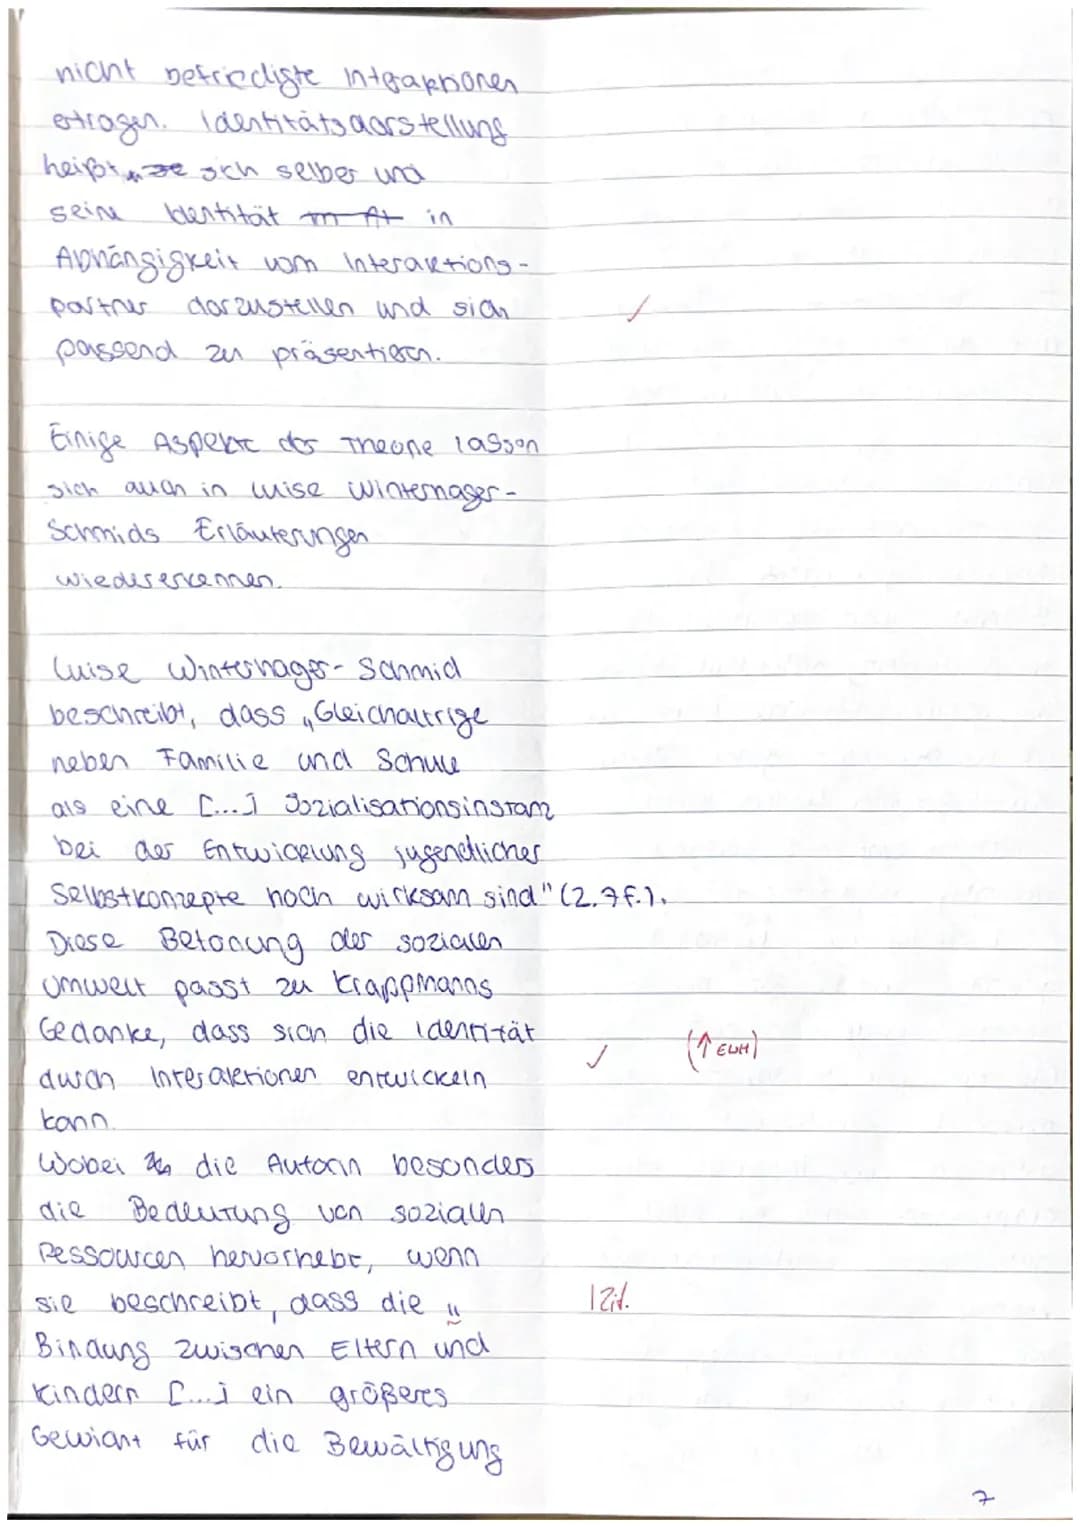 nicht befriedigte Interaktionen
ertragen. Identitätsdarstellung
heißt, sich selber und
seine Identität in
Abhängigkeit vom Interaktions-
partner darzustellen und sich
passend zu präsentieren.
Einige Aspekte der Theorie lassen
sich auch in Luise Winterhager-
Schmids Erläuterungen
wiedererkennen.
Luise Winterhager-Schmid
beschreibt, dass „Gleichaltrige
neben Familie und Schule
als eine [...] Sozialisationsinstanz
bei der Entwicklung jugendlicher
Selbstkonzepte hoch wirksam sind" (Z.7f.).
Diese Betonung der sozialen
Umwelt passt zu Krappmanns
Gedanke, dass sich die Identität
durch Interaktionen entwickeln
(↑ EWH)
kann.
Wobei die Autorin besonders
die Bedeutung von sozialen
Ressourcen hervorhebt, wenn
sie beschreibt, dass die „
| Zit.
Bindung zwischen Eltern und
Kindern [...] ein größeres
Gewicht für die Bewältigung
7